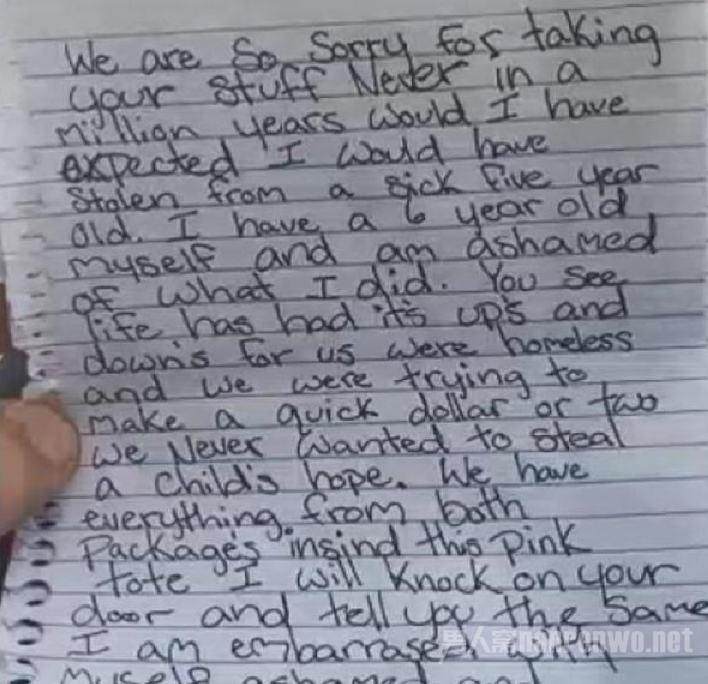 We are So Sorry for taking
your stuff Never in a
million years would I have
expected I would have
Stolen from a sick five year
old. I have a 6 year old
myself and am ashamed
of what I did. You see
life has had it's up's and
down's for us were homeless
and we were trying to
make a quick dollar or two
we Never wanted to steal
a child's hope. We have
everything from both
Package's insind this pink
tote I will knock on your
door and tell you the same
I am embarrased with
Myself ashamed and
nanrenwo.net